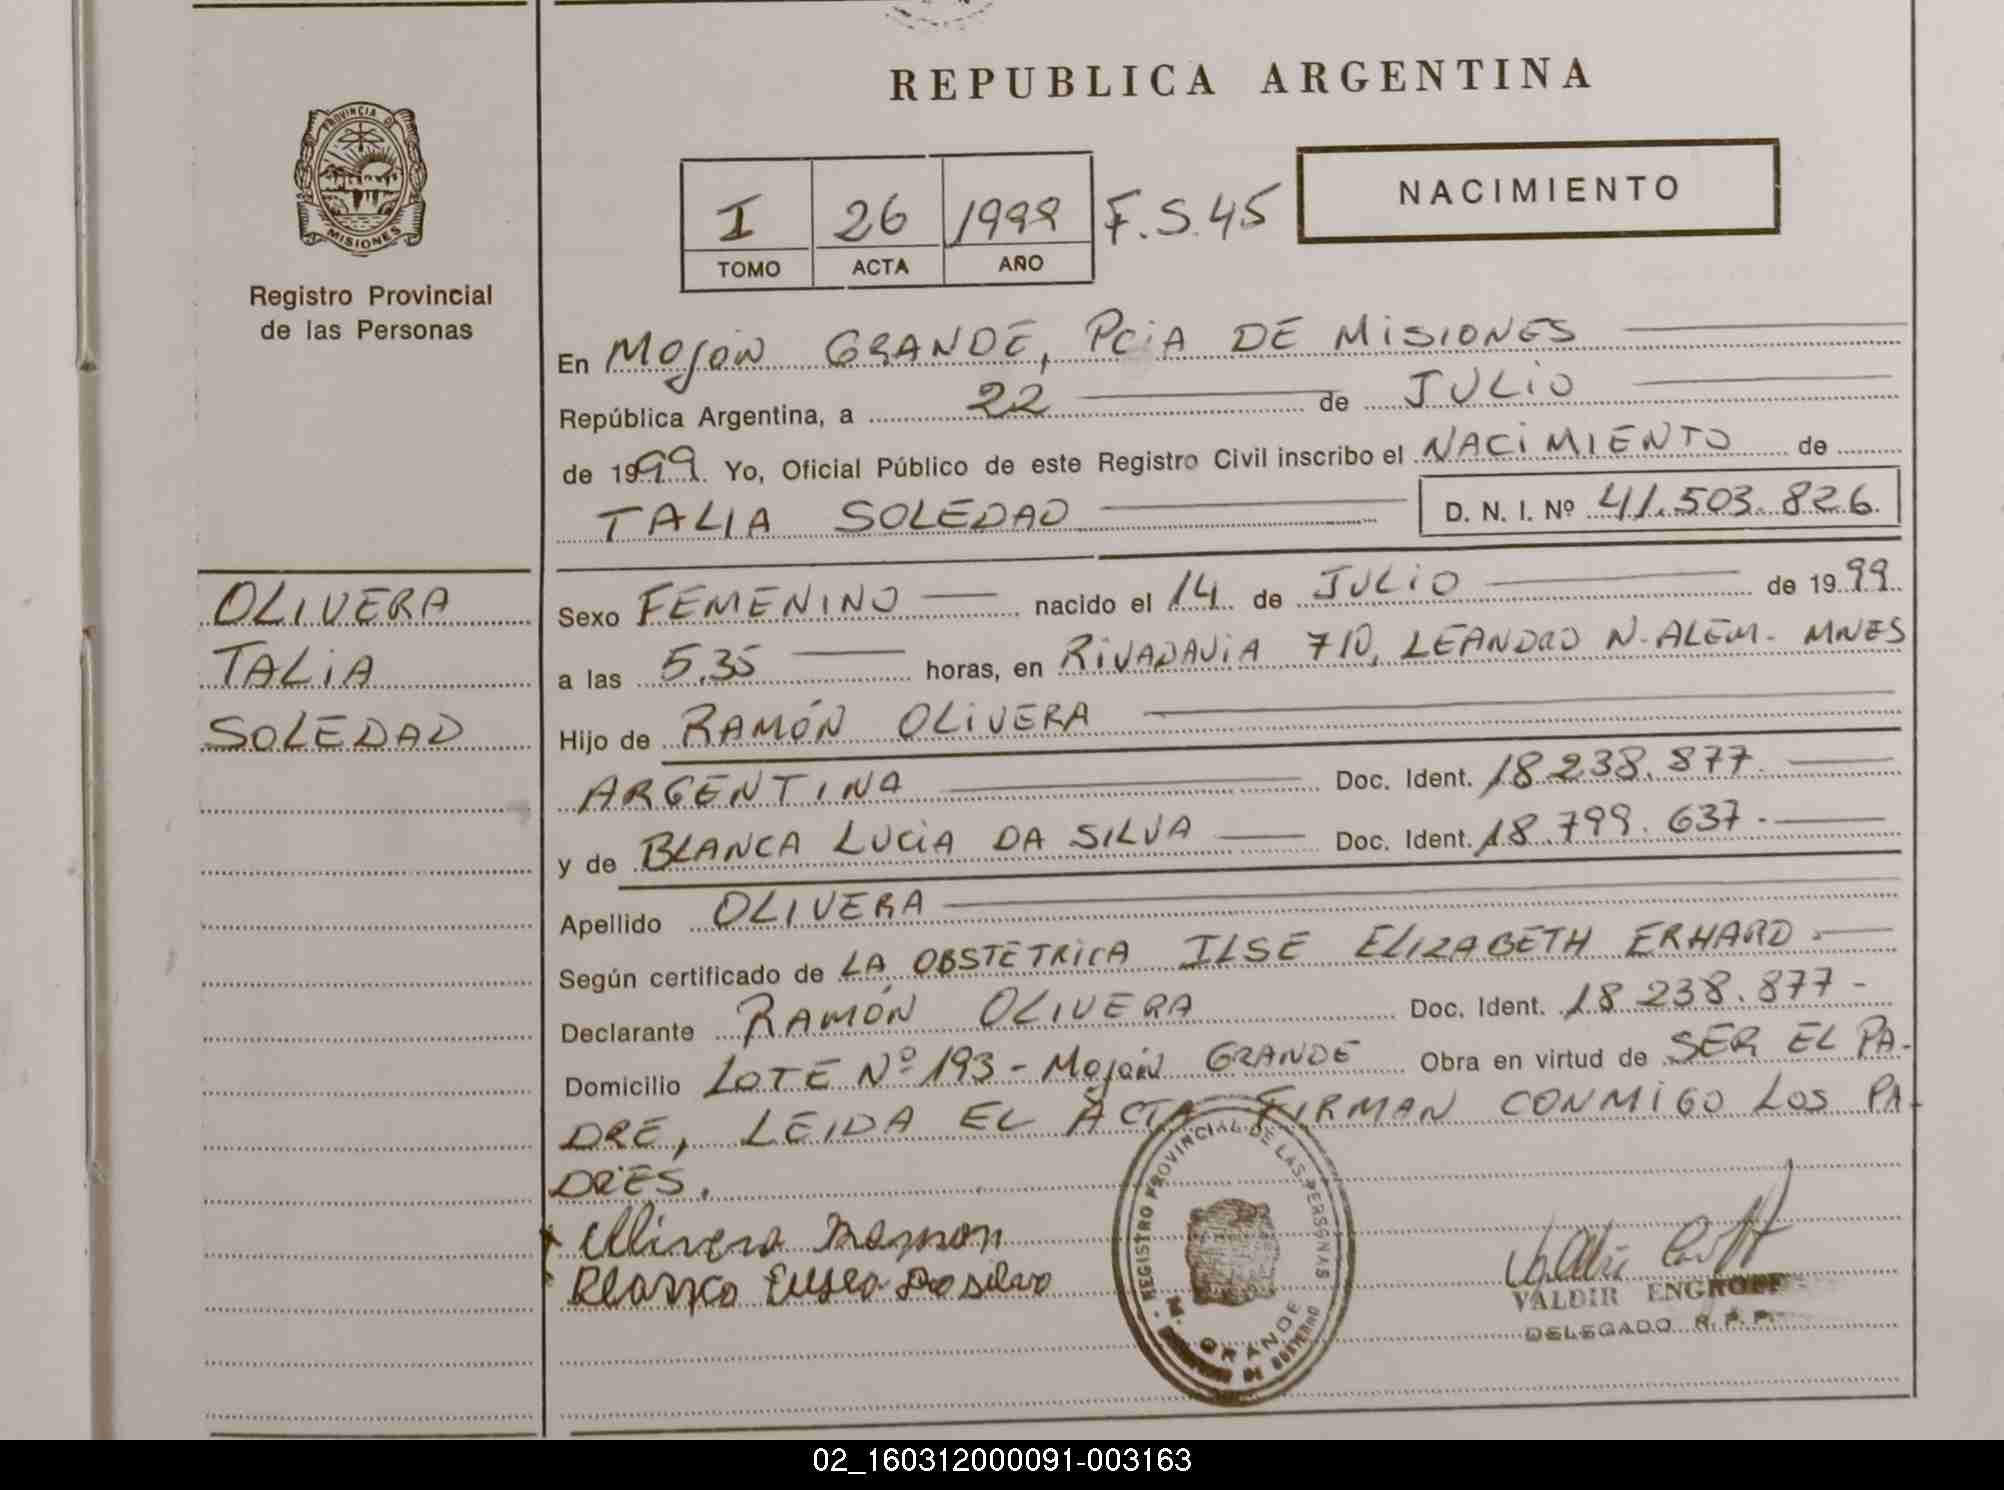 REPUBLICA ARGENTINA
PROVINCIA DE
MISIONES
Registro Provincial
de las Personas
I 26 1999 F.S.45
TOMO ACTA AÑO
NACIMIENTO
En MOJÓN GRANDE, PCIA DE MISIONES
República Argentina, a 22 de JULIO
de 1999. Yo, Oficial Público de este Registro Civil inscribo el NACIMIENTO de
TALIA SOLEDAD D. N. I. Nº 41.503.826.
OLIVERA
TALIA
SOLEDAD
Sexo FEMENINO nacido el 14 de JULIO de 1999
a las 5.35 horas, en RIVADAVIA 710, LEANDRO N. ALEM. MNES
Hijo de RAMÓN OLIVERA
ARGENTINA Doc. Ident. 18.238.877.
y de BLANCA LUCIA DA SILVA Doc. Ident. 18.799.637.
Apellido OLIVERA
Según certificado de LA OBSTETRICA ILSE ELIZABETH ERHARD.
Declarante RAMÓN OLIVERA Doc. Ident. 18.238.877-
Domicilio LOTE Nº 193 - MOJÓN GRANDE Obra en virtud de SER EL PA-
DRE, LEIDA EL ACTA FIRMAN CONMIGO LOS PA-
DRES.
Olivera Ramon
REGISTRO PROVINCIAL DE LAS PERSONAS
M. GRANDE
VALDIR ENGROFF
DELEGADO R.P.P.
02_160312000091-003163